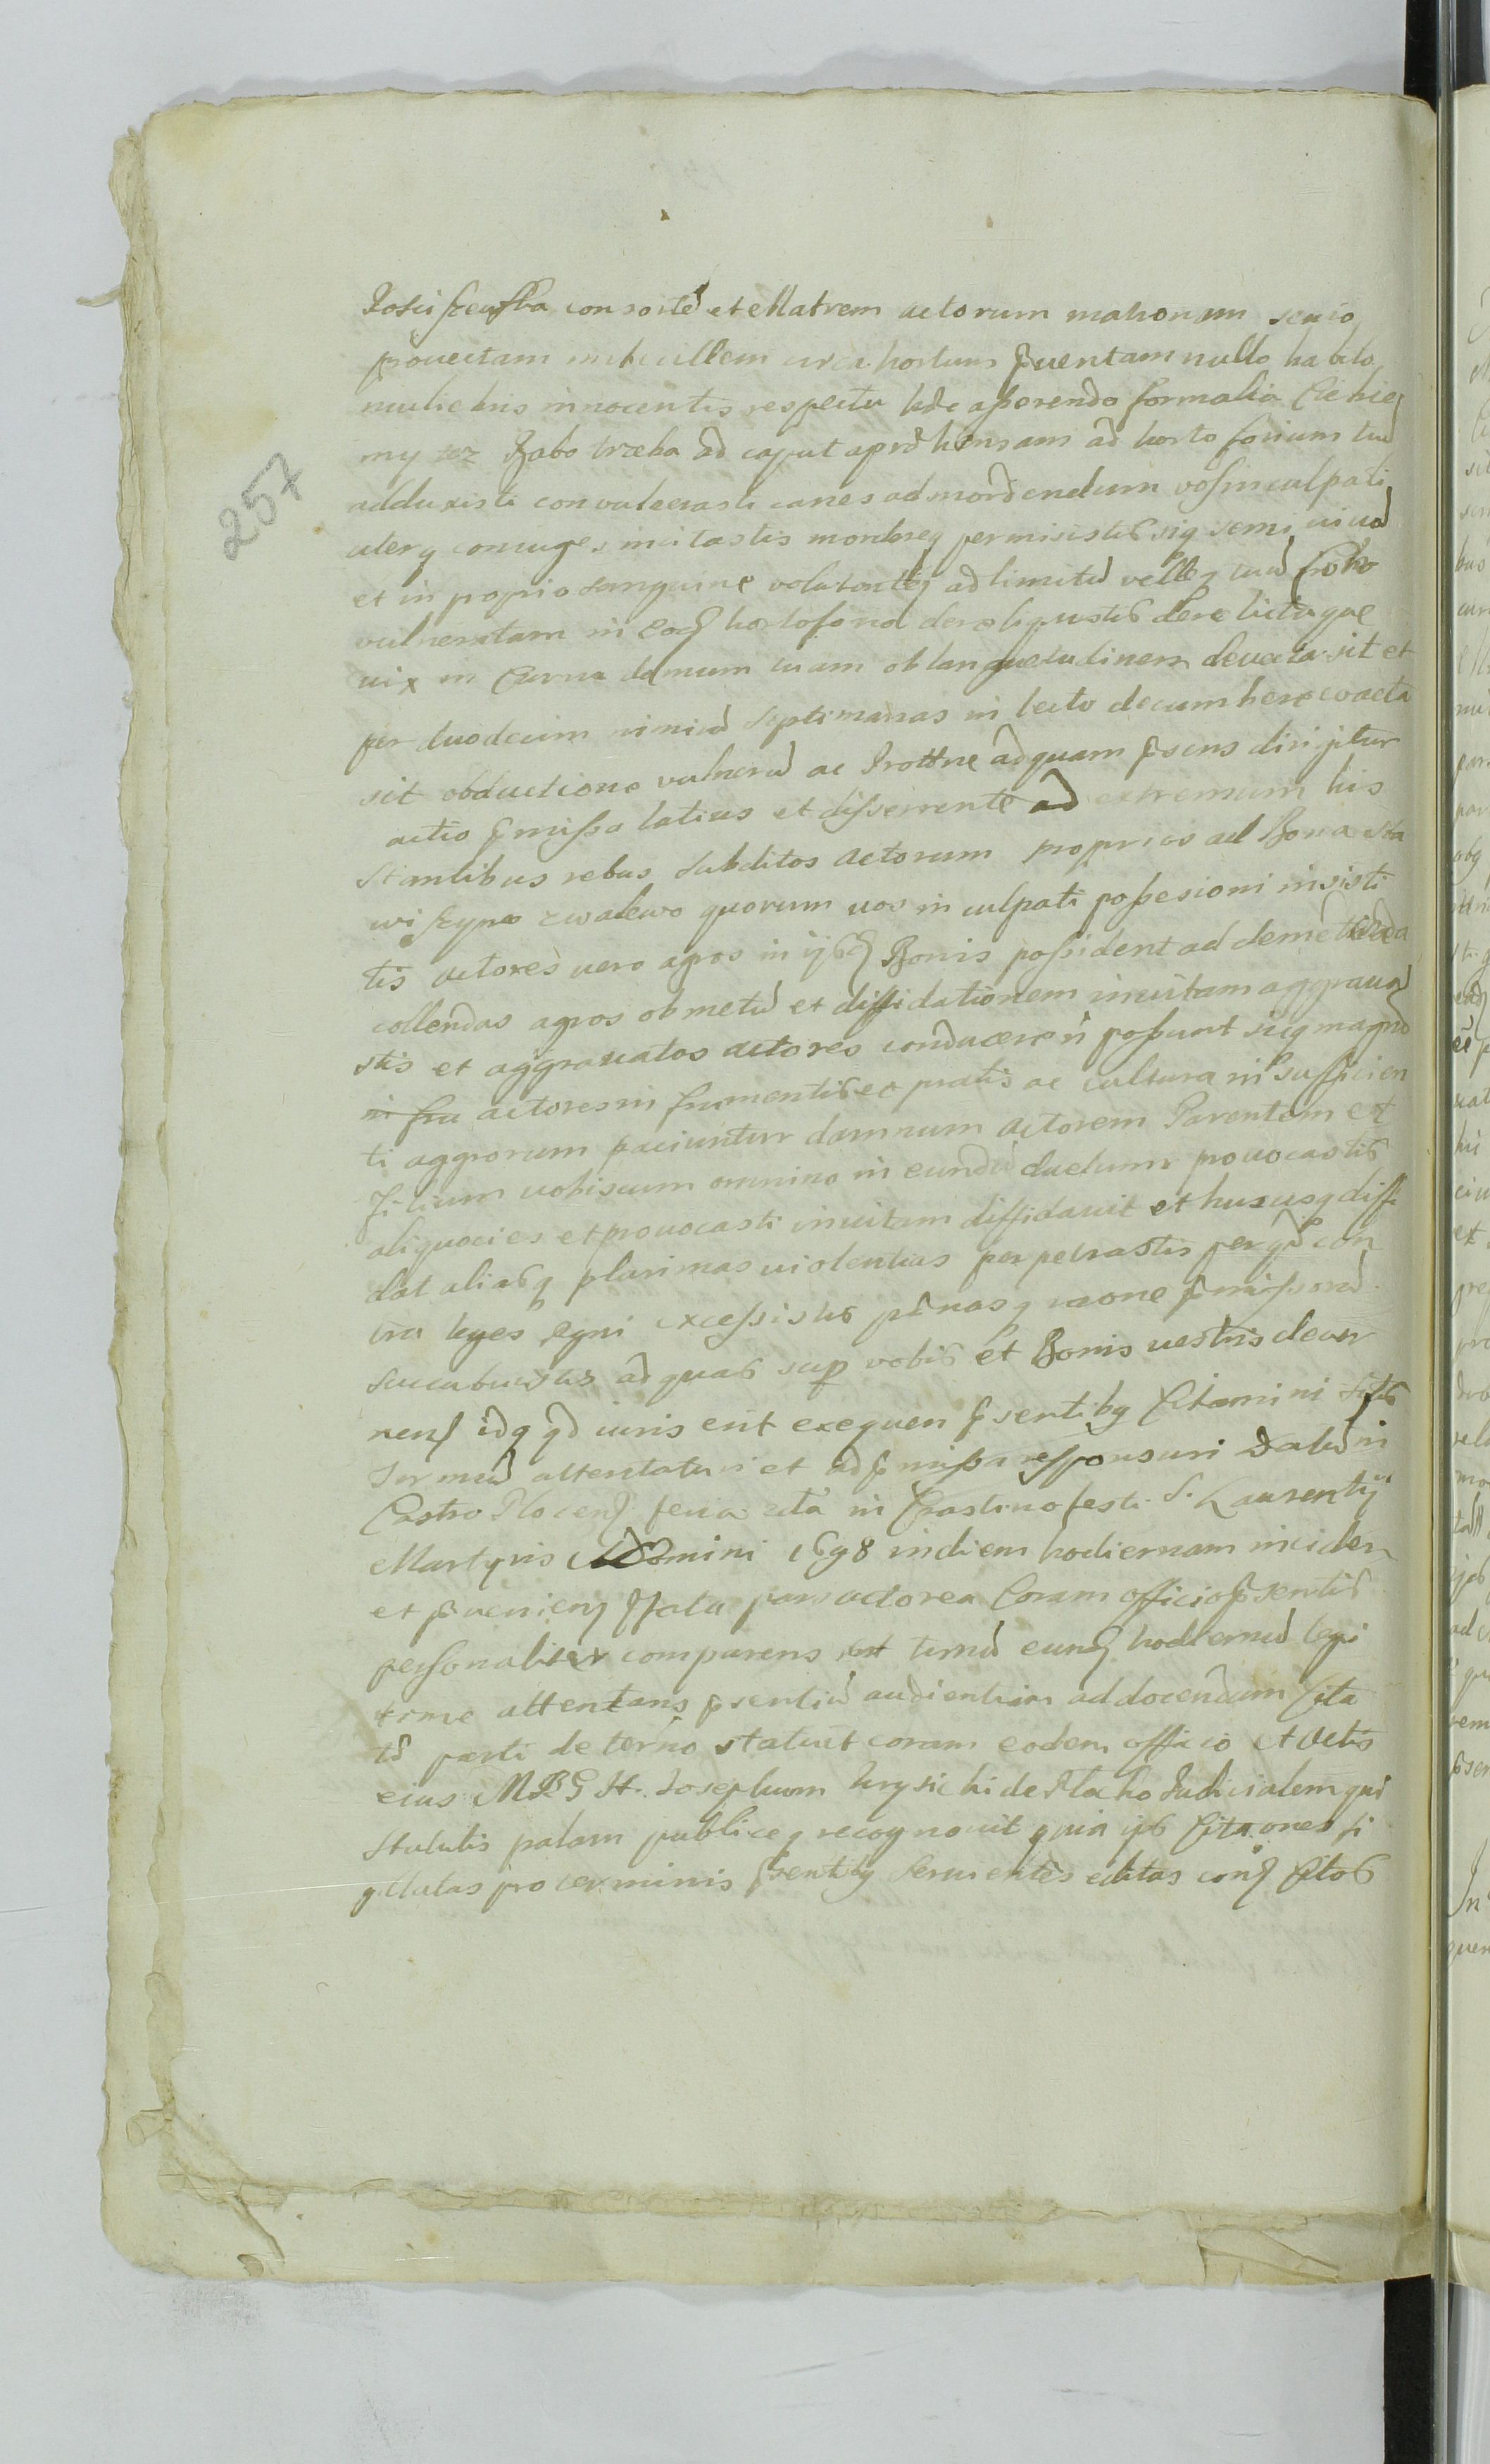 consortẽ et Matrem actorum matronam senio
provectam imbecillem circa hortum pventam nullo habito
muliebris innocentis respectu hæc asserendo formalia Ciebiez
my tez Babo trzeba ad caput apprẽhensam ad horto forium tuũ
adduxisti convulnerasti canes ad mordendum vos inculpati
uterq coniuges incitastis mordereq permisistis sicq semi uiuã
et in proprio sanguine volutantẽ ad limitũ
vulneratam in eodẽ hortoforio dereliquistis derelictaque
uix in Curru domum suam ob languetudinem deuecta sit et
per duodecim nimirũ septimanas in lecto decumbere coacta
sit obductione vulnerũ ac ad quam psens dirigitur
actio pmissa latius et disserente ad extremum his
stantibus rebus subditos actorum proprios ad Bona
quorum uos inculpati possesioni insisti
tis actores uero agros in ijsdẽ Bonis possident ad
collendos agros ob metũ et diffidationem inuitam aggraua
stis et aggrauatos actores conducere ñ possunt sicq magnũ
actores in frumentis et pratis ac cultura insufficien
ti aggrorum paciuntur damnum actorem Parentem et
Filium uobiscum omnino in eundũ duelum prouocastis
aliquocies et prouocasti inuitam diffidauit et hucusq diffi
dat aliasq plurimas uiolentias perpetrastis per qd con
tra leges Regni excessistis pænasq raõne pmissorũ
succubuistis ad quas sup vobis et Bonis uestris decer
nenẽ idq qd iuris erit exequen psentibq Citamini sitis
terminũ attentaturi et ad pmissa responsuri Datũ in
Castro Plocenẽ feria 2da in Crastino festi S. Laurentij
Martyris ADomini 1698 in diem hodiernam inciden
et pueniens Itatu pars actorea Coram officio psentis
personaliter comparens et ternũ eundẽ hodiernũ legi
time attentans psentiũ audientiam ad docendum Cita
tõ parti de terno statuit coram eodem officio et Actis
eius MRG H. Josephum de Ministerialem qui
stulutis palam publiceq recognouit quia ipse Citaones si
gillatas pro terminis psentibq seruientes editas conẽ Citos
257